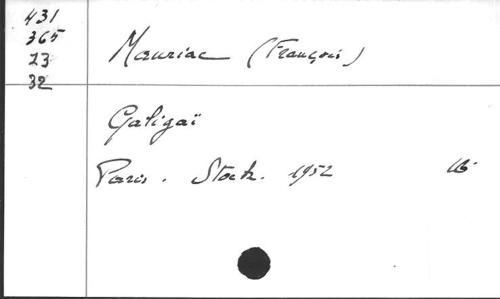 431
365
23
32
Mauriac (François)
Galigaï
Paris. Stock. 1952